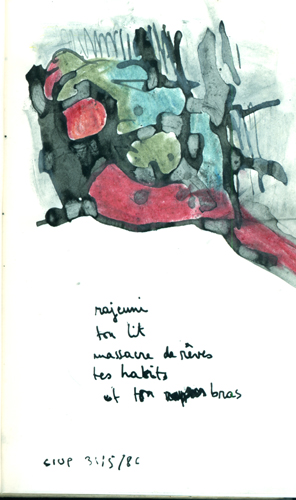 rajeuni
ton lit
massacre de rêves
tes habits
et ton bras
CIUP 31/5/86